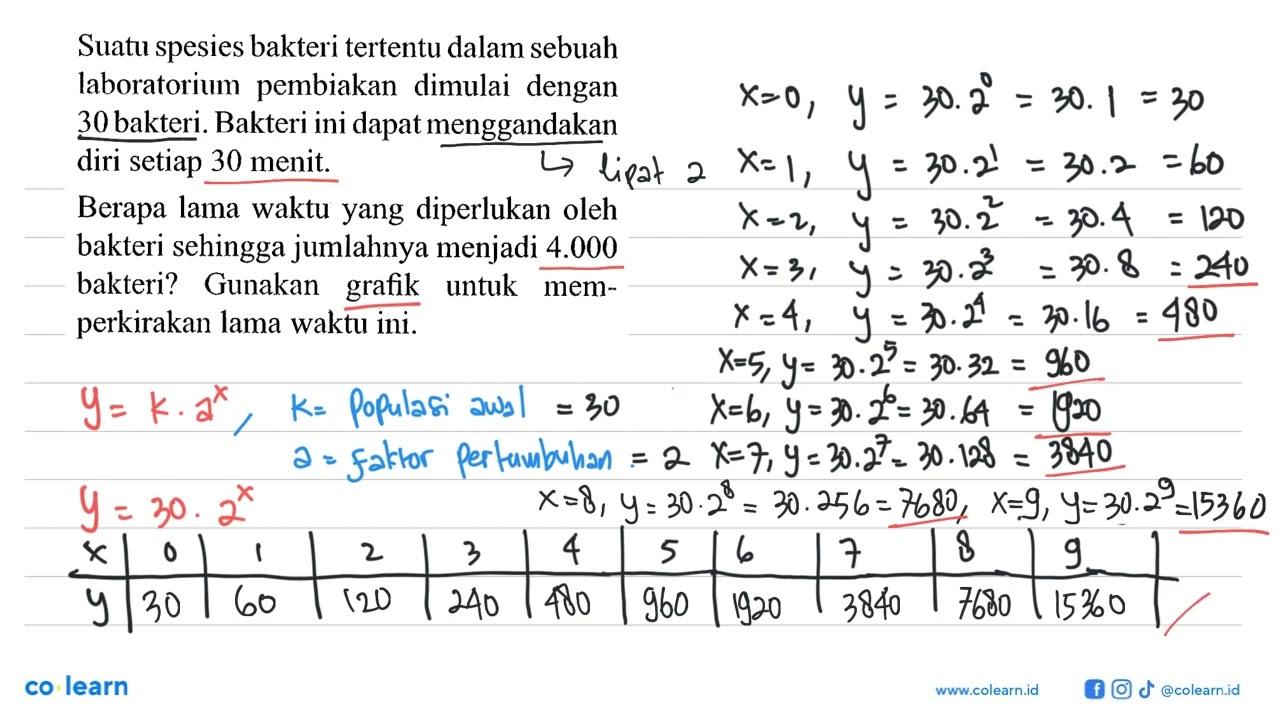 Suatu spesies bakteri tertentu dalam sebuah
laboratorium pembiakan dimulai dengan
30 bakteri. Bakteri ini dapat menggandakan
diri setiap 30 menit.
↳ lipat 2
Berapa lama waktu yang diperlukan oleh
bakteri sehingga jumlahnya menjadi 4.000
bakteri? Gunakan grafik untuk mem-
perkirakan lama waktu ini.
x=0, y = 30.2⁰ = 30.1 = 30
x=1, y = 30.2¹ = 30.2 = 60
x=2, y = 30.2² = 30.4 = 120
x=3, y = 30.2³ = 30.8 = 240
x=4, y = 30.2⁴ = 30.16 = 480
x=5, y = 30.2⁵ = 30.32 = 960
x=6, y = 30.2⁶ = 30.64 = 1920
x=7, y = 30.2⁷ = 30.128 = 3840
y = k.aˣ, k = populasi awal = 30
a = faktor pertumbuhan = 2
y = 30.2ˣ
x=8, y = 30.2⁸ = 30.256 = 7680, x=9, y = 30.2⁹ = 15360
x 0 1 2 3 4 5 6 7 8 9
y 30 60 120 240 480 960 1920 3840 7680 15360
co learn
www.colearn.id @colearn.id